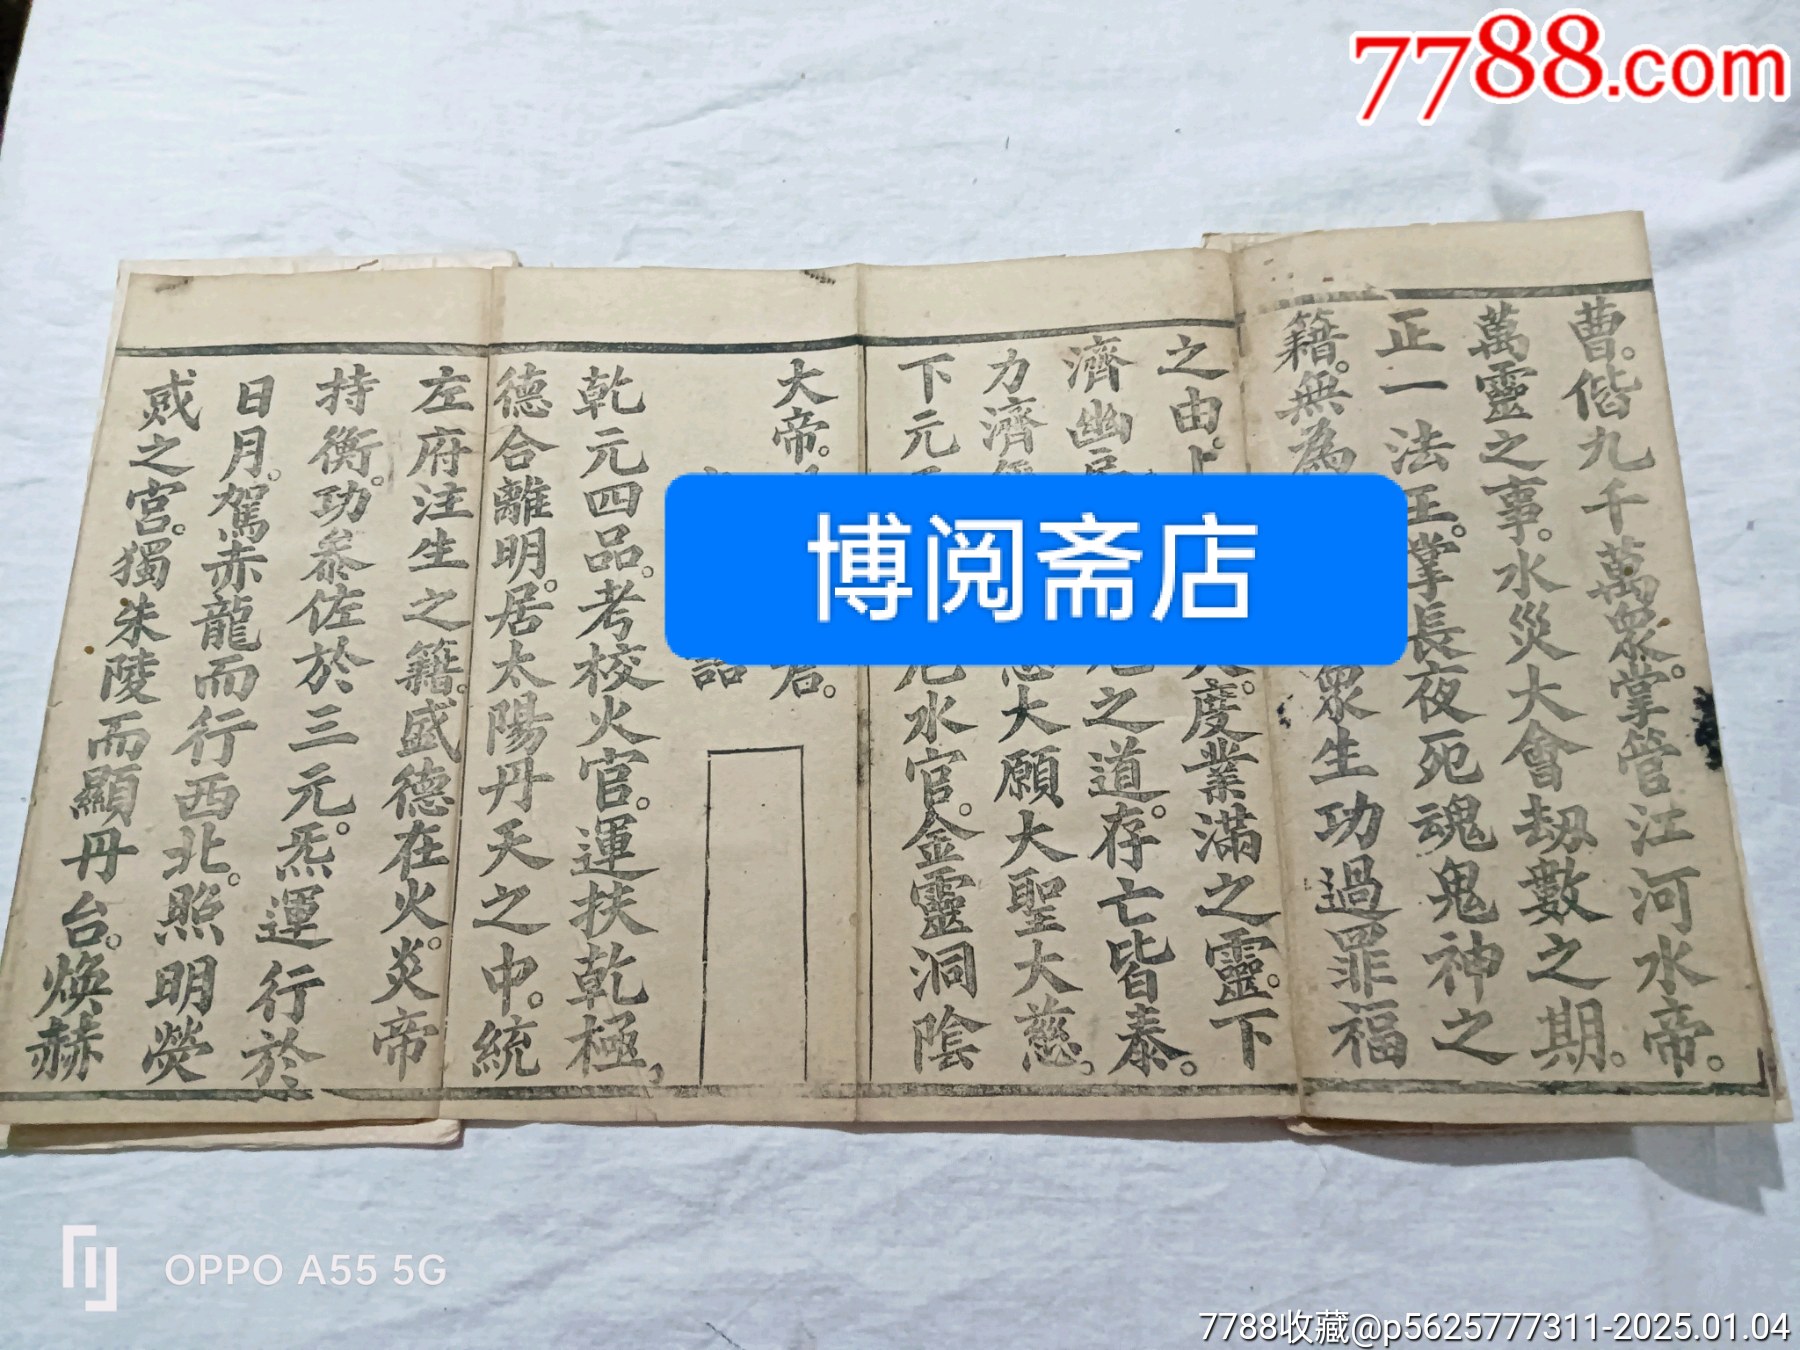 7788.com
曹。偕九千萬眾。掌管江河水帝。
萬靈之事。水災大會劫數之期。
正一法王。掌長夜死魂鬼神之
籍。無為
眾生功過罪福
之由。上
度業滿之靈。下
濟幽
之道。存亡皆泰。
力濟
大願大聖大慈。
下元
水官。金靈洞陰
大帝。
君。
誥
乾元四品。考校火官。運扶乾極。
德合離明。居太陽丹天之中。統
左府注生之籍。盛德在火。炎帝
持衡。功叅佐於三元。炁運行於
日月。駕赤龍而行西北。照明熒
惑之宮。獨朱陵而顯丹台。煥赫
博阅斋店
OPPO A55 5G
7788收藏@p5625777311-2025.01.04